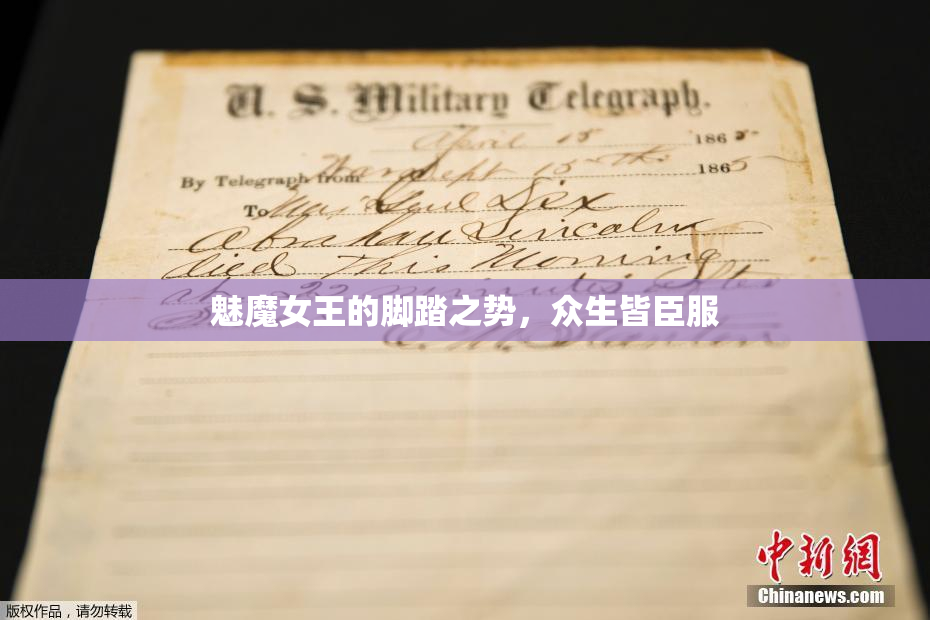 U. S. Military Telegraph.
April 15 1865
By Telegraph from War Dept 15th 1865
To Maj Genl Dix
Abraham Lincoln
died This Morning
at 22 minutes after
魅魔女王的脚踏之势，众生皆臣服
E. M. Stanton
中新网
Chinanews.com
版权作品，请勿转载